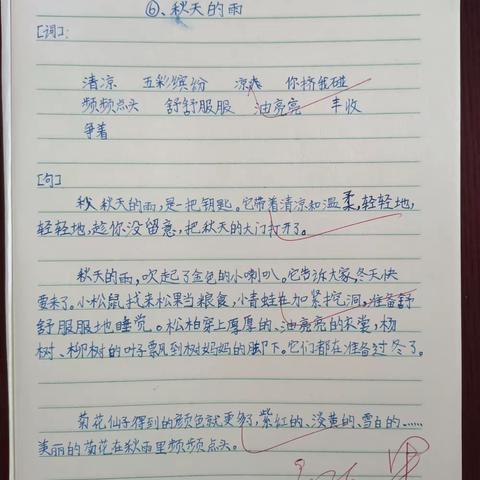 ⑥、秋天的雨
[词]：
清凉 五彩缤纷 凉爽 你挤我碰
频频点头 舒舒服服 油亮亮 丰收
争着
[句]
秋天的雨，是一把钥匙。它带着清凉和温柔，轻轻地，
轻轻地，趁你没留意，把秋天的大门打开了。
秋天的雨，吹起了金色的小喇叭。它告诉大家，冬天快
要来了。小松鼠找来松果当粮食，小青蛙在加紧挖洞，准备舒
舒服服地睡觉。松柏穿上厚厚的、油亮亮的衣裳，杨
树、柳树的叶子飘到树妈妈的脚下。它们都在准备过冬了。
菊花仙子得到的颜色就更多了，紫红的、淡黄的、雪白的……
美丽的菊花在秋雨里频频点头。